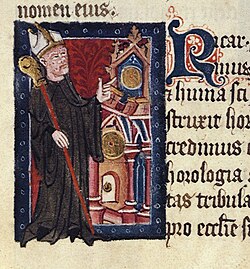 nomen eius:
Ricar
dus
t huma sci
struxit hor
credimus e
horologia
tas tribula
pro eccle